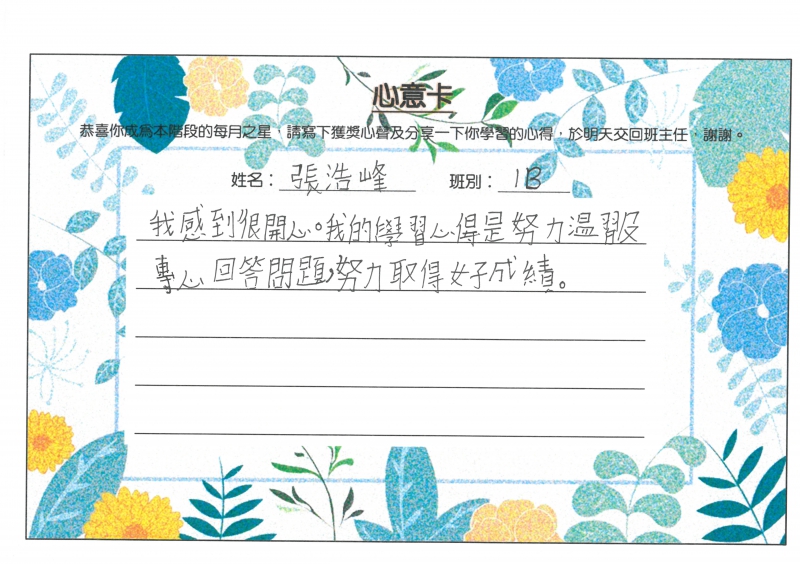 心意卡
恭喜你成為本階段的每月之星，請寫下獲獎心聲及分享一下你學習的心得，於明天交回班主任，謝謝。
姓名：張浩峰 班別：1B
我感到很開心。我的學習心得是努力溫習及
專心回答問題，努力取得好成績。